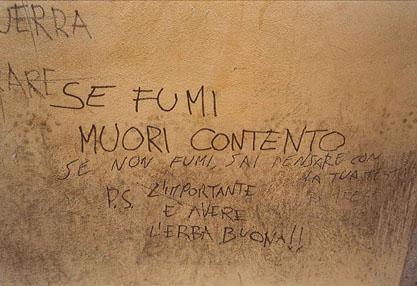 UERRA
ARE
SE FUMI
MUORI CONTENTO
SE NON FUMI, SAI PENSARE CON
LA TUA TESTA
P.S. L'IMPORTANTE
E' AVERE
L'ERBA BUONA!!